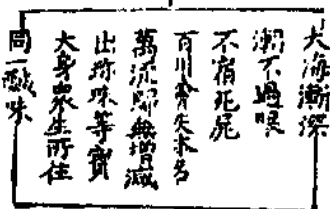 大海漸深
潮不過限
不宿死屍
百川會失本名
萬流歸無增減
出珎味等寶
大身眾生所住
同一醎味